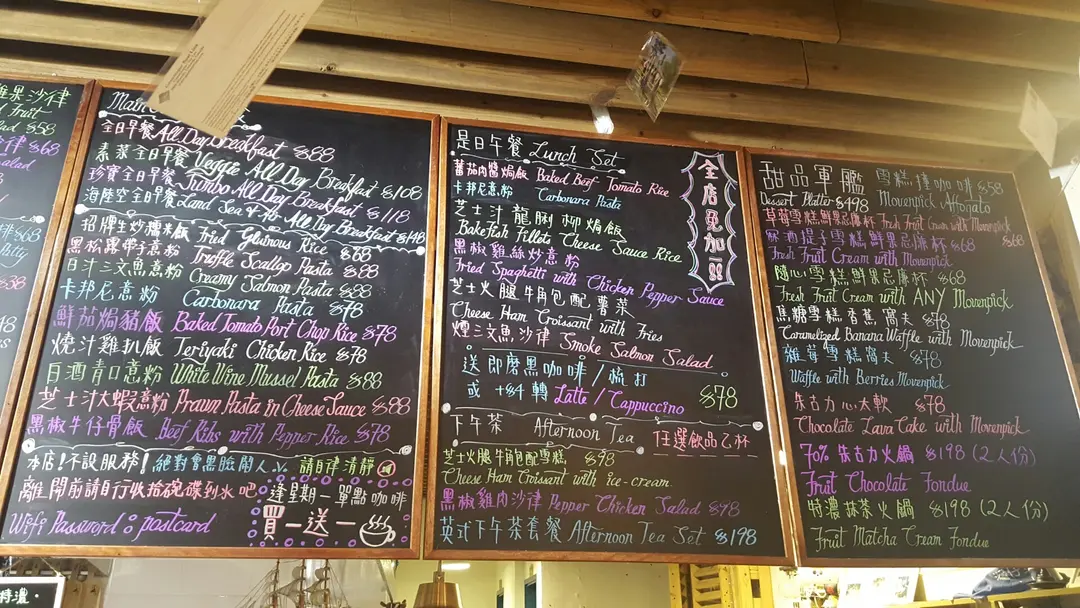 雜果沙律
Fruit
Salad $58
$68
Salad
$68
Main
全日早餐 All Day Breakfast $88
素菜全日早餐 Veggie All Day Breakfast $108
珍寶全日早餐 Jumbo All Day Breakfast $118
海陸空全日早餐 Land Sea & Air All Day Breakfast $148
招牌生炒糯米飯 Fried Glutinous Rice $68
黑松露帶子意粉 Truffle Scallop Pasta $88
日汁三文魚意粉 Creamy Salmon Pasta $88
卡邦尼意粉 Carbonara Pasta $78
鮮茄焗豬飯 Baked Tomato Port Chop Rice $78
燒汁雞扒飯 Teriyaki Chicken Rice $78
日酒青口意粉 White Wine Mussel Pasta $88
芝士汁大蝦意粉 Prawn Pasta in Cheese Sauce $88
黑椒牛仔骨飯 Beef Ribs with Pepper Rice $78
本店!不設服務! 絕對會黑臉閙人 請自律清靜
離開前請自行收拾碗碟到水吧
Wifi Password : postcard
逢星期一單點咖啡
買一送一
是日午餐 Lunch Set
蕃茄肉醬焗飯 Baked Beef Tomato Rice
卡邦尼意粉 Carbonara Pasta
芝士汁龍脷柳焗飯
Bakefish Fillets Cheese Sauce Rice
黑椒雞絲炒意粉
Fried Spaghetti with Chicken Pepper Sauce
芝士火腿牛角包配薯菜
Cheese Ham Croissant with Fries
煙三文魚沙律 Smoke Salmon Salad
送即磨黑咖啡/梳打
或 +$4 轉 Latte / Cappuccino $78
全店免加!!
下午茶 Afternoon Tea 任選飲品乙杯
芝士火腿牛角包配雪糕 $98
Cheese Ham Croissant with ice-cream
黑椒雞肉沙律 Pepper Chicken Salad $98
英式下午茶套餐 Afternoon Tea Set $198
甜品軍艦
Dessert Platter $498
雪糕撞咖啡 $58
Movenpick Affogato
草莓雪糕鮮果忌廉杯 Fresh Fruit Cream with Movenpick $68
酥酒提子雪糕鮮果忌廉杯 $68
Fresh Fruit Cream with Movenpick
隨心雪糕鮮果忌廉杯 $68
Fresh Fruit Cream with ANY Movenpick
焦糖雪糕香蕉窩夫 $78
Caramelized Banana Waffle with Movenpick
雜莓雪糕窩夫 $78
Waffle with Berries Movenpick
朱古力心太軟 $78
Chocolate Lava Cake with Movenpick
70% 朱古力火鍋 $198 (2人份)
Fruit Chocolate Fondue
特濃抹茶火鍋 $198 (2人份)
Fruit Matcha Cream Fondue
特濃